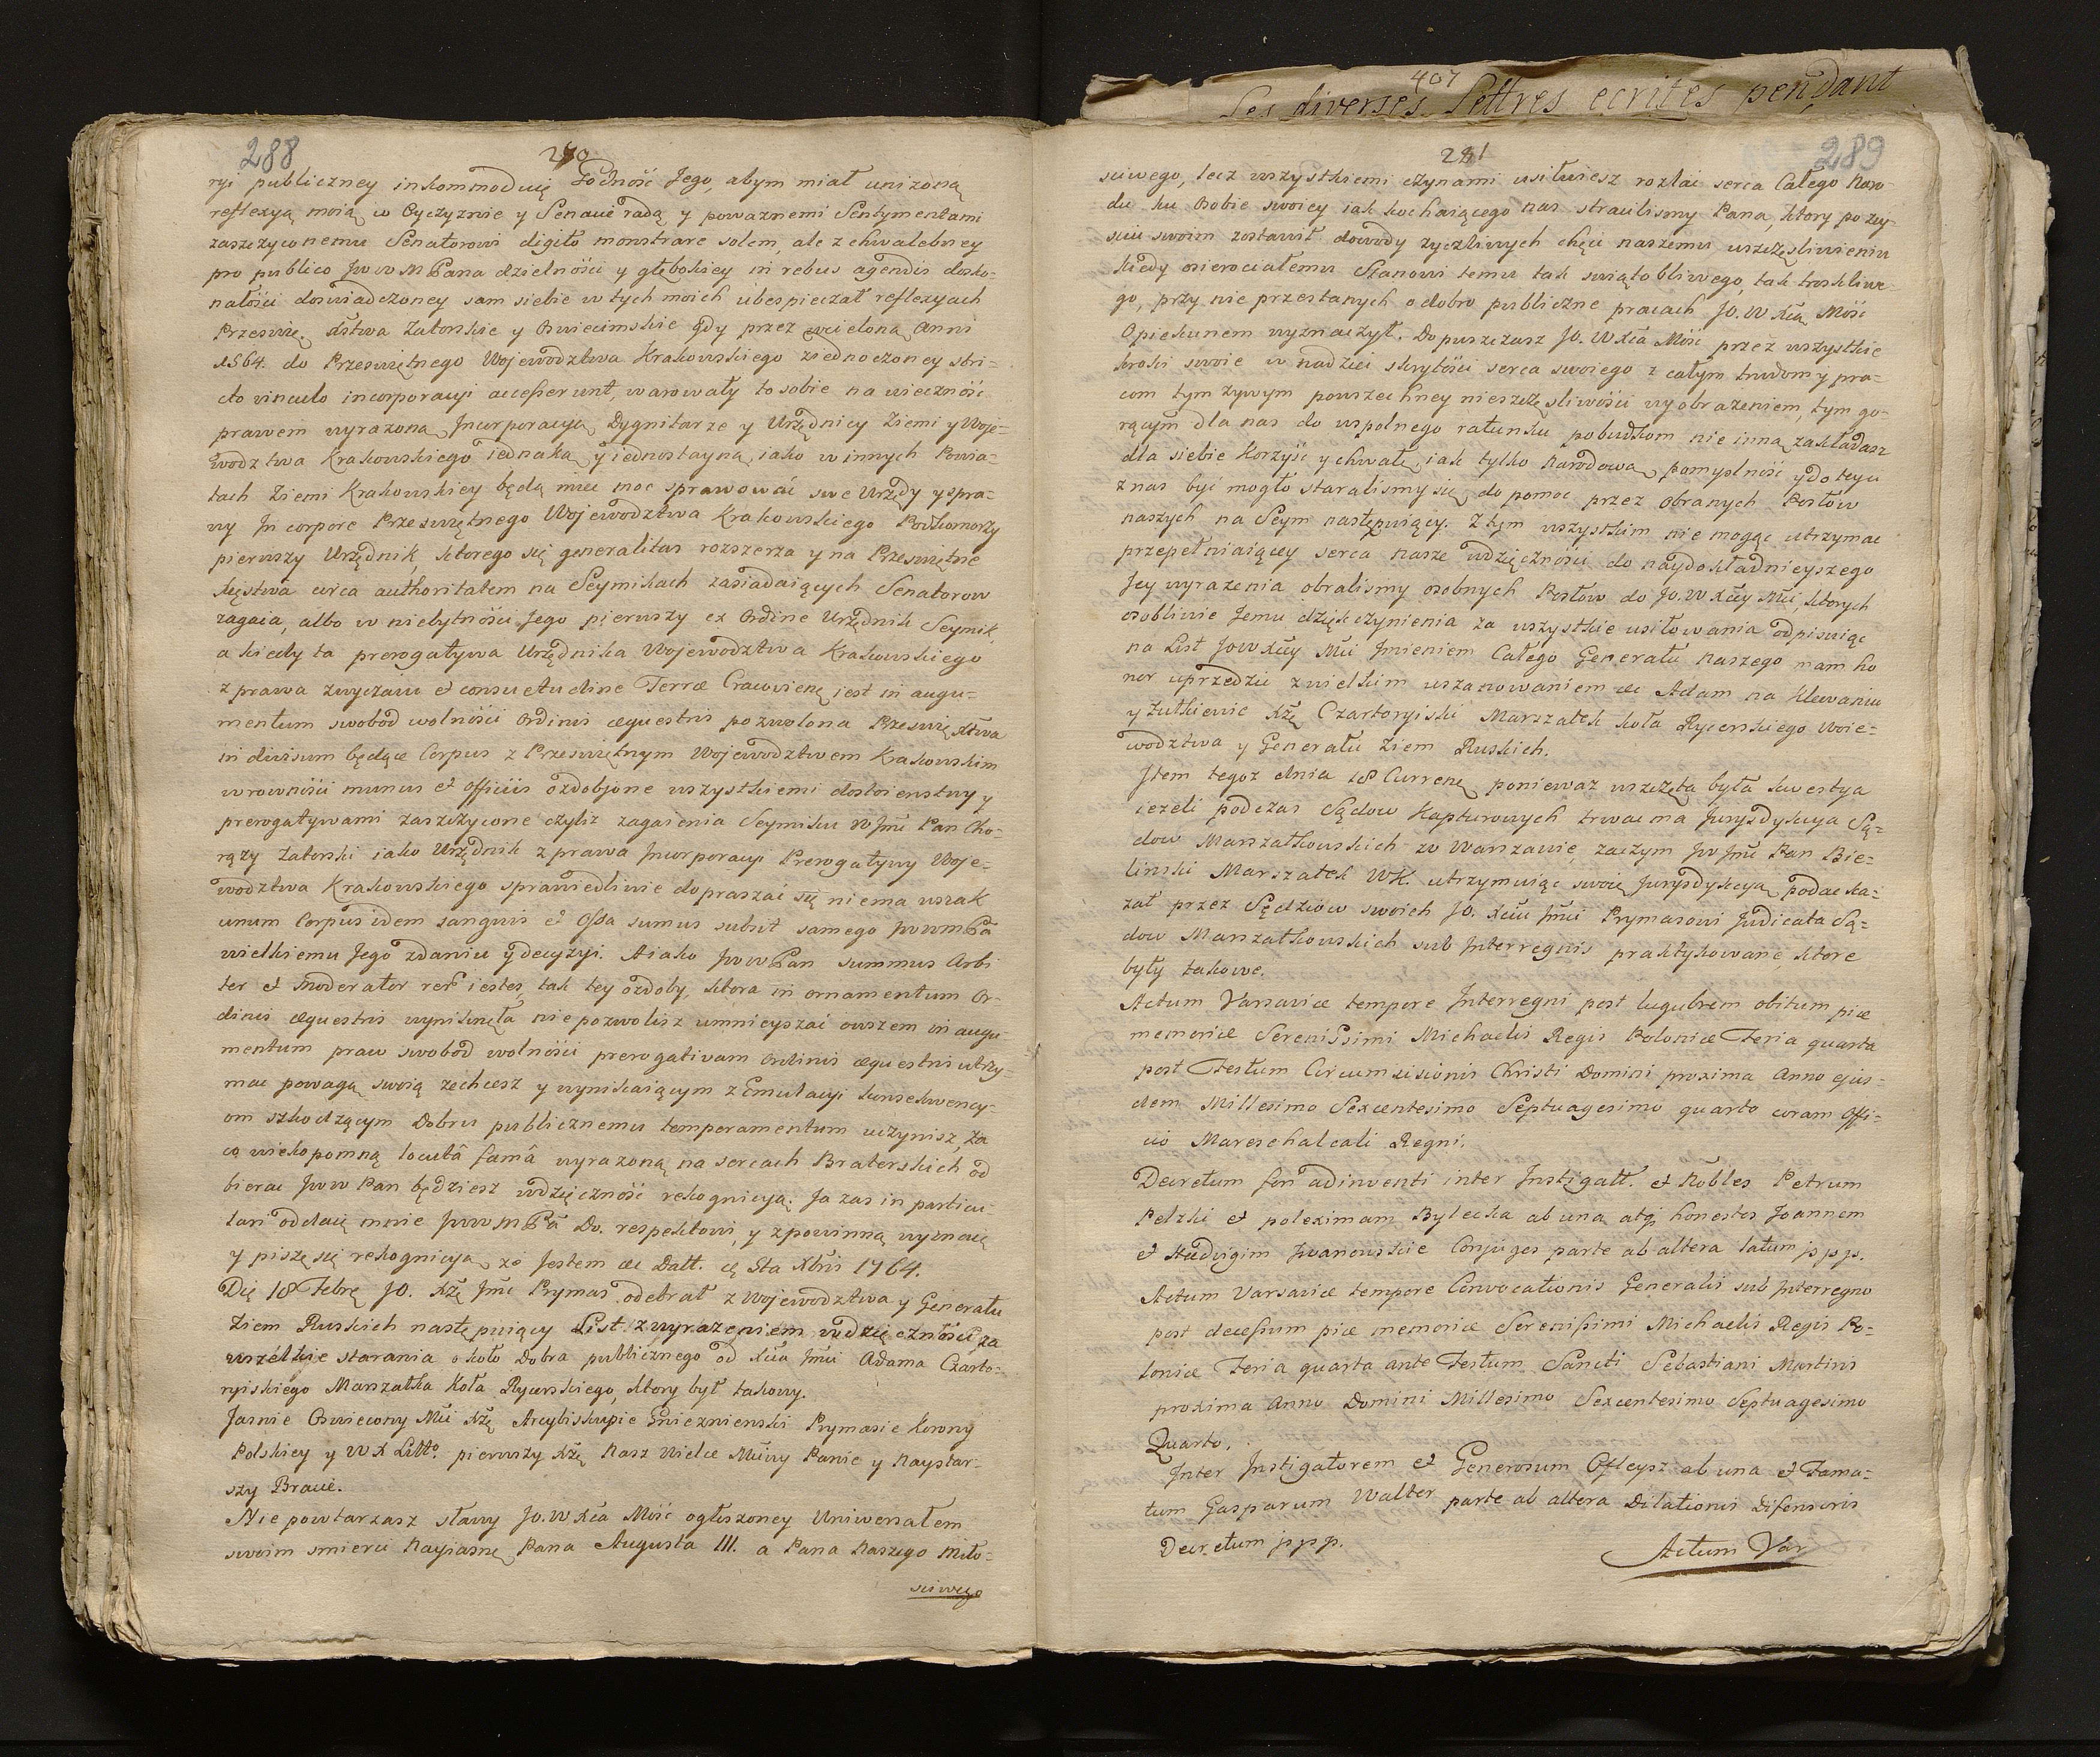 288
280
ryi publiczney inkommoduię Godność Jego, abym miał uniżoną
reflexyą moią w Oyczyznie y Senacie radą y powaznemi Sentymentami
zaszczyconemu Senatorowi digito monstrare solem, ale z chwalebney
pro publico JWWMPana dzielności y głębokiey in rebus agendis dosko-
nałości doswiadczoney sam siebie w tych moich ubespieczał reflexyach
Przeswię. Xstwa Zatorskie y Oswiecimskie gdy przez wcieloną Anni
1564. do Przeswiętnego Wojewodztwa Krakowskiego ziednoczoney stri-
cto vinculo incorporacyi accesserunt, warowały to sobie na wieczność
prawem wyrazoną Jncorporacyą Dygnitarze y Urzędnicy Ziemi y Woje-
wodztwa Krakowskiego iednaką y iednostayną iako w innych Powia-
tach Ziemi Krakowskiey będą miec moc sprawować swe Urzędy y spra-
wy Jn corpore Przeswiętnego Wojewodztwa Krakowskiego Podkomorzy
pierwszy Urzędnik, ktorego się generalitas rozszerza y na Przeswiętne
Xięstwa circa authoritatem na Seymikach zasiadaiących Senatorow
zagaia, albo w niebytności Jego pierwszy ex Ordine Urzędnik Seymik,
a kiedy ta prerogatywa Urzędnika Wojewodztwa Krakowskiego
z prawa zwyczaiu et consuetudine Terræ Cracovienę iest in augu-
mentum swobod wolności Ordinis æquestris pozwolona Przeswię Xstwa
in divisum będące Corpus z Przeswiętnym Wojewodztwem Krakowskim
w rowności munus et officiis ozdobjone wszystkiemi dostoienstwy y
prerogatywami zaszczycone czyliż zagaienia Seymiku W Jmć Pan Cho-
rązy Zatorski iako Urzędnik z prawa Jncorporacyi Prerogatywy Woje-
wodztwa Krakowskiego sprawiedliwie dopraszać się niema wszak
unum Corpus idem sanguis et ossa sumus subiit samego JWWMPa
wielkiemu Jego zdaniu y decyzyi. A iako JWWPan summus Arbi
ter et Moderator rer iestes, tak tey ozdoby, ktora in ornamentum Or-
dinis æquestris wyniknęła nie pozwolisz umnieyszać owszem in augu-
mentum praw swobod wolności prerogativam Ordinis æquestris utrzy-
mac powagą swoią zechcesz y wynikaiącym z Emulacyi konsekwency-
om szkodzącym Dobru publicznemu temperamentum uczynisz, za
co wiekopomną locutâ famâ wyrazoną na sercach Braterskich od
bierac JWW Pan będziesz wdzięczność rekognicyą. Ja zas in particu
lari oddaię mnie JWWMPa Do. respektowi, y z powinną wyznaię
y piszę się rekognicyą ze Jestem &c Datt. ę 5ta Xbris 1764.
Dię 18 Febrę JO. Xże Jmć Prymas odebrał z Wojewodztwa y Generału
Ziem Ruskich następuiący List z wyrazeniem wdzięczności za
wszelkie starania około Dobra publicznego od Xcia Jmci Adama Czarto-
ryiskiego Marszałka Koła Rycerskiego, ktory był takowy.
Jasnie Oswiecony Mci Xże Arcybiskupie Gnieznienski Prymasie Korony
Polskiey y W X Litto. pierwszy Xże Nasz Wielce Mciwy Panie y Naystar-
szy Bracie.
Nie powtarzasz sławy JO. W Xca Mość ogłoszoney Uniwersałem
swoim smierci Nayiasnę Pana Augusta III. a Pana Naszego Miło-
sciwego
407
Les diverses Lettres ecrites pendant
281
289
sciwego, lecz wszystkiemi czynami usiłuiesz rozlac serca Całego Naro-
du ku Osobie swoiey iak kochaiącego nas stracilismy Pana, ktory po zey-
sciu swoim zostawił dowody zyczliwych chęci naszemu uszczęsliwieniu
kiedy osierociałemu Stanowi temu tak swiątobliwego, tak troskliwe
go, przy nie przestanych o dobro publiczne pracach JO. W Xca Mość
Opiekunem wyznaczył. Dopuszczasz JO. W Xca Mość przez wszystkie
kroki swoie w nadziei skrytości serca swoiego z całym trudom y pra-
com tym zywym powszechney nieszczęsliwości wyobrazeniem, tym go-
rącym dla nas do wspolnego ratunku pobudkom nie inną zakładasz
dla siebie Korzyść y chwałę, iak tylko Narodową pomyslność y do teyu
z nas być mogło staralismy się do pomoc przez obranych Posłow
naszych na Seym następuiący. Z tym wszystkim nie mogąc utrzymac
przepełniaiącey serca nasze wdzięczności do naydokładnieyszego
Jey wyrazenia obralismy osobnych Posłow do JO. W Xcey Mci ktorych
osobliwie Jemu dziękczynienia za wszystkie usiłowania odpisuiąc
na List JOWXcey Mci Jmieniem Całego Generału Naszego mam ho
nor uprzedzić z wielkim uszanowaniem &c Adam na Klewaniu
y Zutkiewie Xże Czartoryiski Marszałek koła Rycerskiego Woie-
wodztwa y Generału Ziem Ruskich.
Jtem tegoz dnia 18 Currenę poniewaz wszczęta była kwestya
iezeli podczas Sądow Kapturowych trwac ma Juryzdykcya Są-
dow Marszałkowskich w Warszawie, zaczym JW Jmć Pan Bie-
linski Marszałek WK. utrzymuiąc swoię Juryzdykcyą podac ka-
zał przez Sędziow swoich JO. Xciu Jmci Prymasowi Judicata Są-
dow Marszałkowskich sub Jnterregnis praktykowane, ktore
były takowe.
Actum Varsaviæ tempore Jnterregni post lugubrem obitum piæ
memoriæ Serenissimi Michaelis Regis Poloniæ Feria quarta
post Festum Circumcisionis Christi Domini proxima Anno ejus-
dem Millesimo Sexcentesimo Septuagesimo quarto coram Offi-
cio Mareschalcali Regni.
Decretum fori adinventi inter Jnstigatt. et Nobles Petrum
Pelzki et poleximam Bylecka ab una atqȝ honestos Joannem
et Hedvigim Jwanowskie Conjuges parte ab altera latum jp p p.
Actum Varsaviæ tempore Convocationis Generalis sub Jnterregno
post decessum piæ memoriæ Serenissimi Michaelis Regis Po-
loniæ Feria quarta ante Festum Sancti Sebastiani Martiris
proxima Anno Domini Millesimo Sexcentesimo Septuagesimo
Quarto.
Jnter Jnstigatorem et Generosum Ofleysz ab una et Fama-
tum Gasparum Walter parte ab altera Dilationis Difensiris
Decretum jp p p.
Actum Var